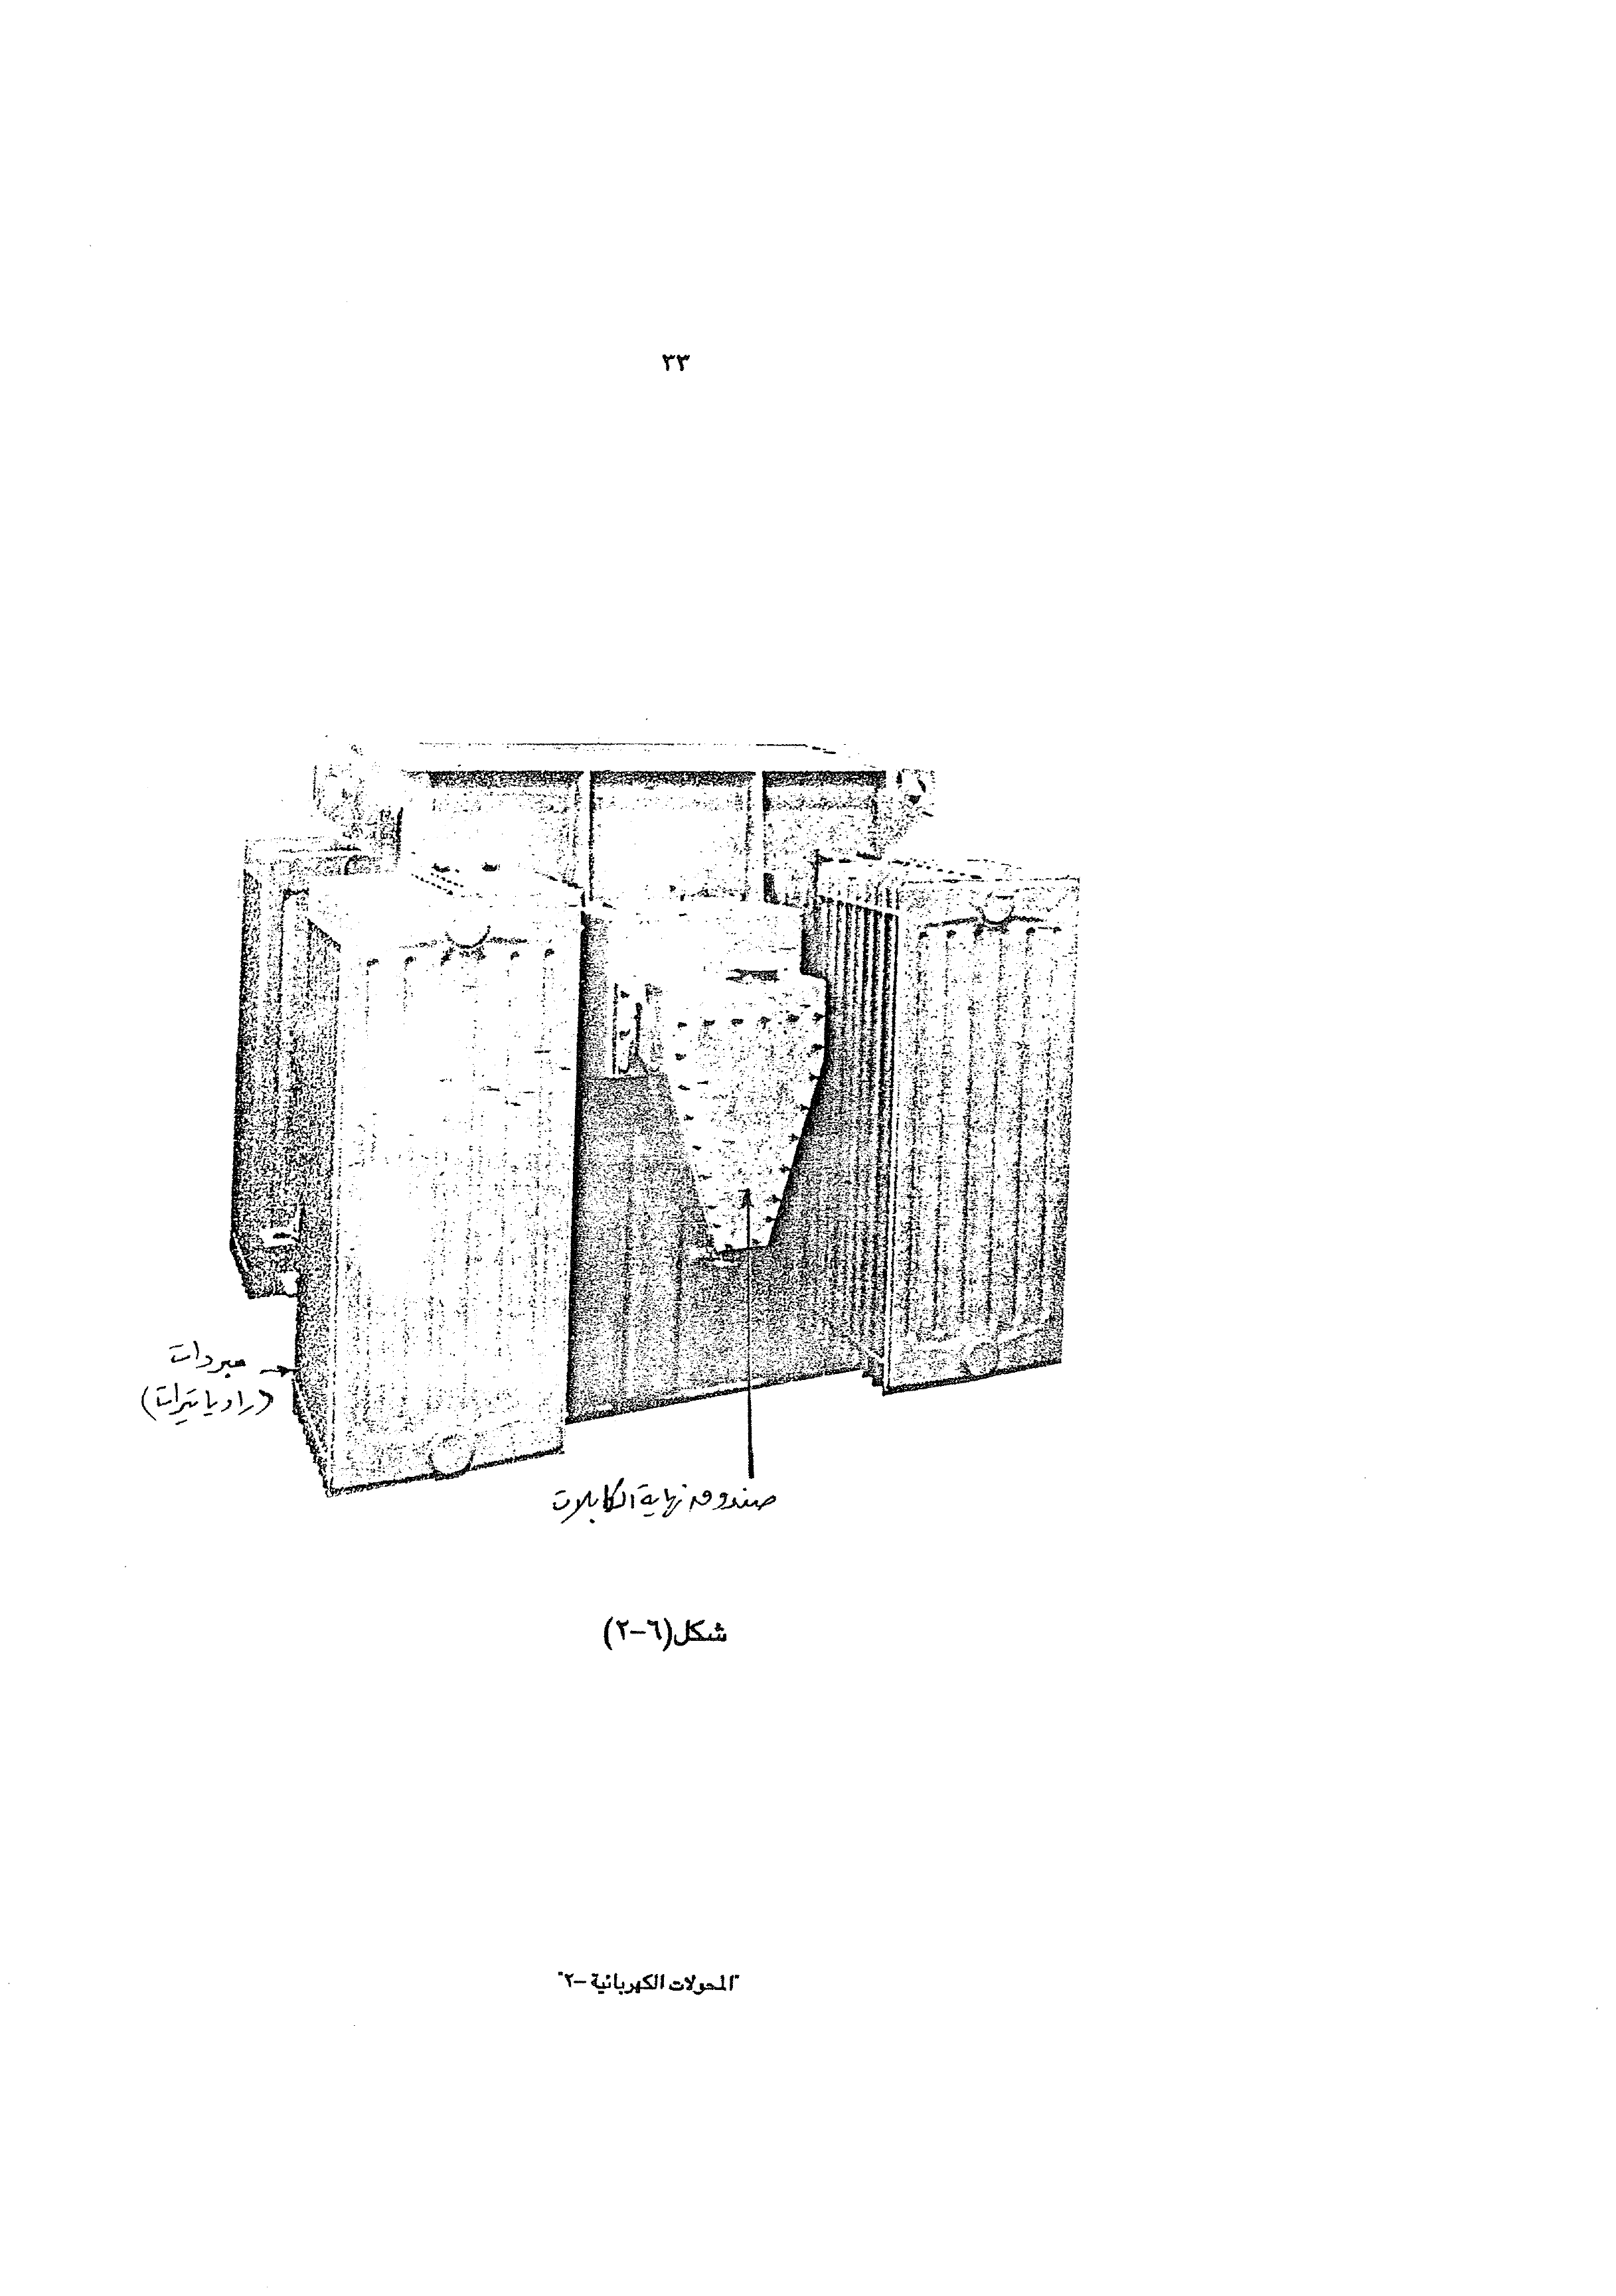 ٣٣
مبردات
(راديا تيرات)
صندوق نهاية الكابلات
شكل(٦-٢)
"المحولات الكهربائية -٢"